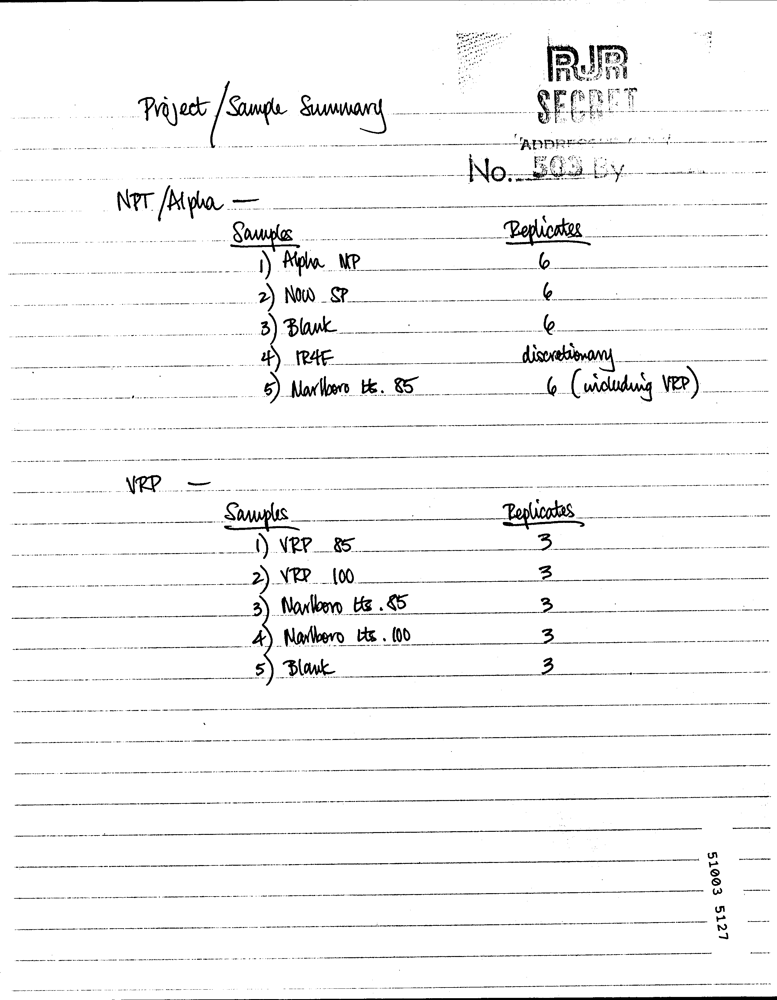 RJR
SECRET
Project / Sample Summary
No. 503 By
NPT / Alpha —
Samples Replicates
1) Alpha NP 6
2) NOW SP 6
3) Blank 6
4) 1R4F discretionary
5) Marlboro Lts. 85 6 (including VRP)
VRP —
Samples Replicates
1) VRP 85 3
2) VRP 100 3
3) Marlboro Lts. 85 3
4) Marlboro Lts. 100 3
5) Blank 3
51003 5127